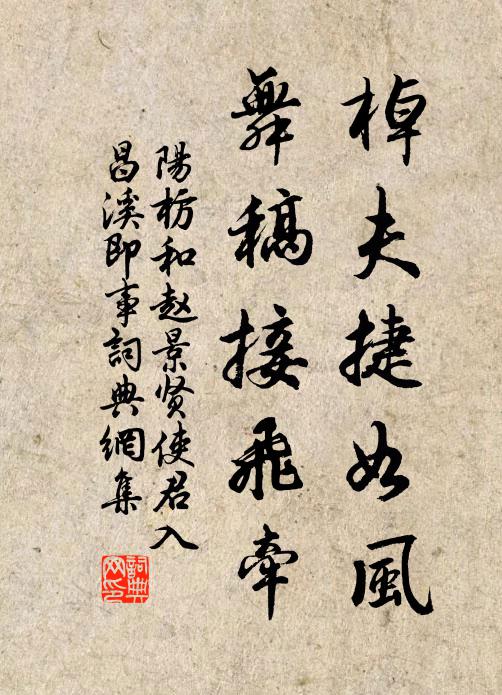 棹夫捷如風
舞稿接飛牽
陽枋和赵景贤使君入
昌溪即事詞典網集
詞典网印